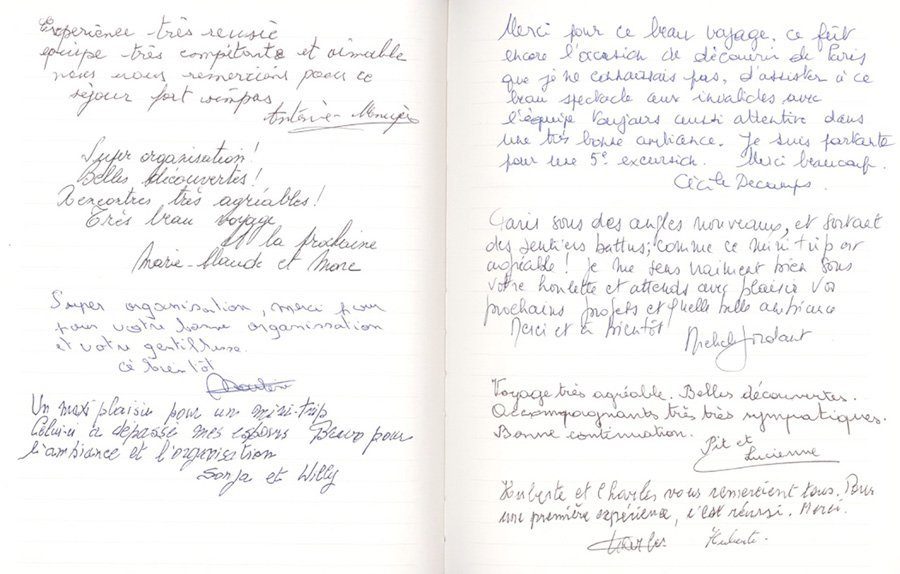 Expérience très reussie
equipe très compétante et aimable
nous vous remercions pour ce
séjour fort sympas
Super organisation!
Belles découvertes!
Rencontres très agréables!
Très beau voyage
A la prochaine
Marie-Claude et Marc
Super organisation, merci pour
pour votre bonne organisation
et votre gentillesse.
à bientôt
Un maxi plaisir pour un mini-trip
Celui-ci a dépassé mes espoirs Bravo pour
l'ambiance et l'organisation
Sonja et Willy
Merci pour ce beau voyage, ce fût
encore l'occasion de découvrir de Paris
que je ne connaissais pas, d'assister à ce
beau spectacle aux invalides avec
l'équipe toujours aussi attentive dans
une très bonne ambiance. Je suis partante
pour une 5e excursion. Merci beaucoup.
Cécile Decamps.
Paris sous des angles nouveaux, et sortant
des sentiers battus; comme ce mini trip est
agréable! Je me sens vraiment bien sous
votre houlette et attends avec plaisir vos
prochains projets et quelle belle ambiance
Merci et à bientôt
Michel
Voyage très agréable. Belles découvertes.
Accompagnants très très sympatiques.
Bonne continuation.
Pit et
Lucienne
Huberte et Charles vous remercient tous. Pour
une première expérience, c'est réussi. Merci.
Charles Huberte.